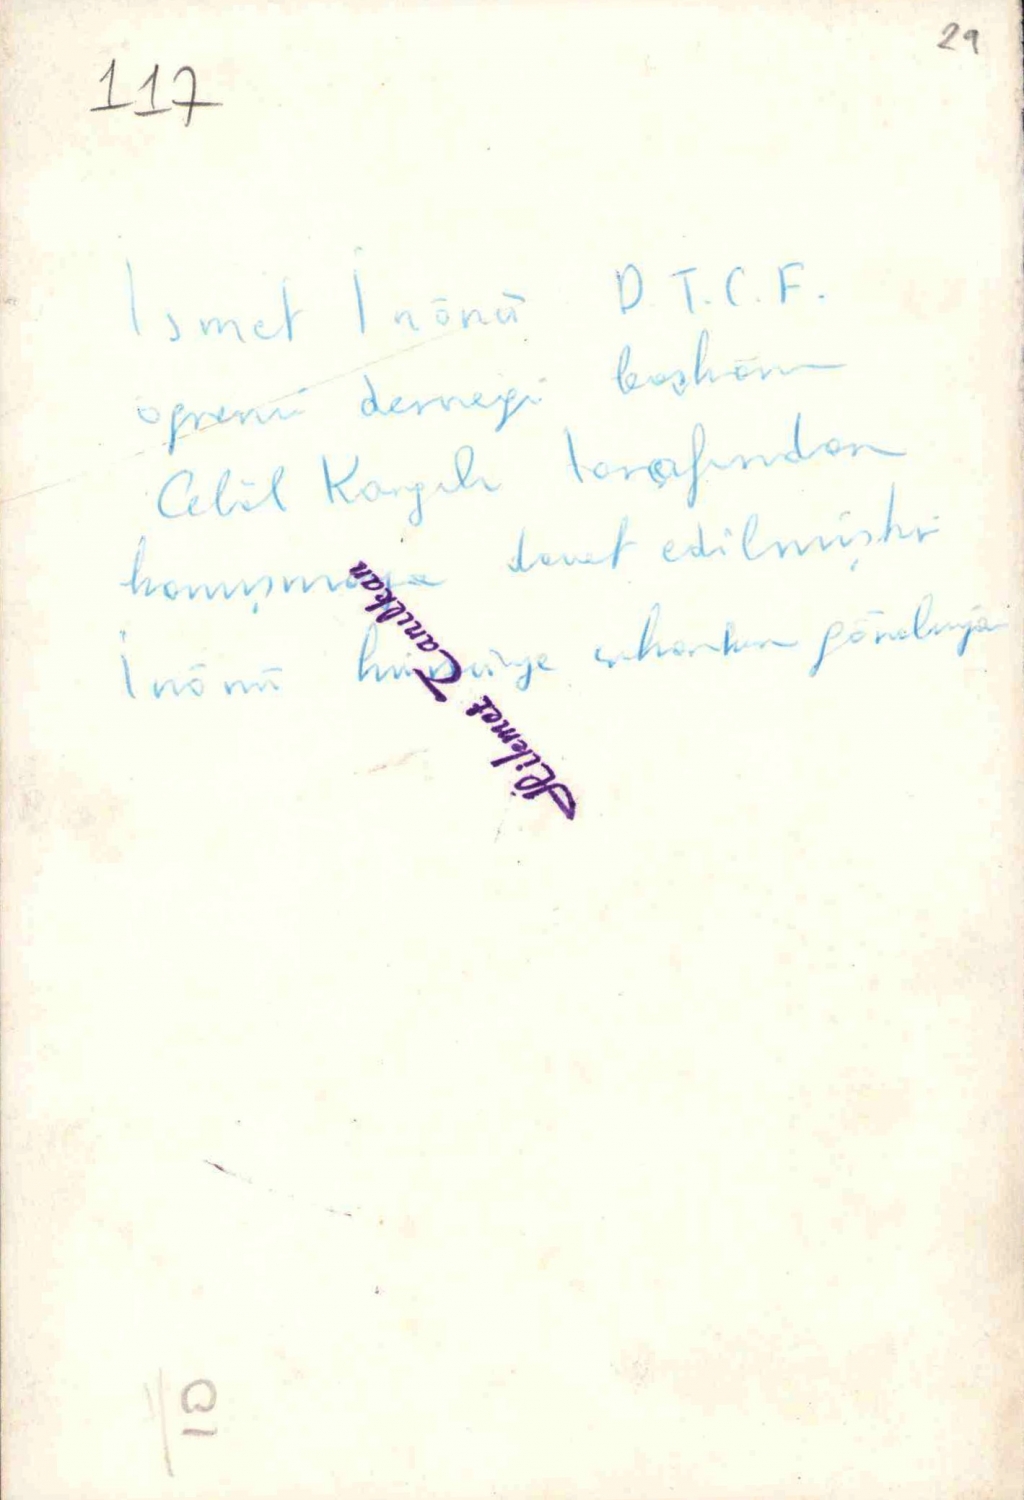 29
117
İsmet İnönü D.T.C.F.
öğrenci derneği başkanı
Celâl Kargılı tarafından
konuşmaya davet edilmiştir
İnönü kürsüye çıkarken görülüyor
Hikmet Tanılkan